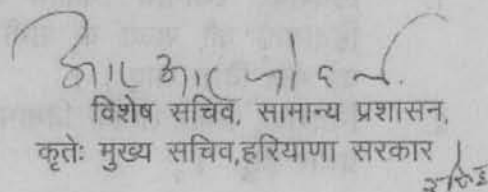 आर आर जोवल.
विशेष सचिव, सामान्य प्रशासन,
कृतेः मुख्य सचिव,हरियाणा सरकार